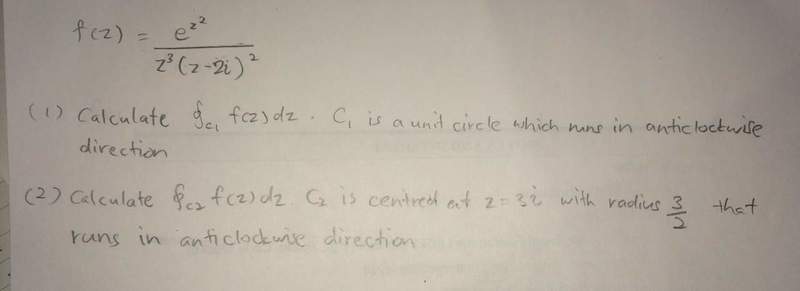 f(z) = e^{z^2} / z^3 (z-2i)^2
(1) Calculate ∮_{C1} f(z)dz . C1 is a unit circle which runs in anticlockwise
direction
(2) Calculate ∮_{C2} f(z)dz C2 is centred at z = 3i with radius 3/2 that
runs in anticlockwise direction